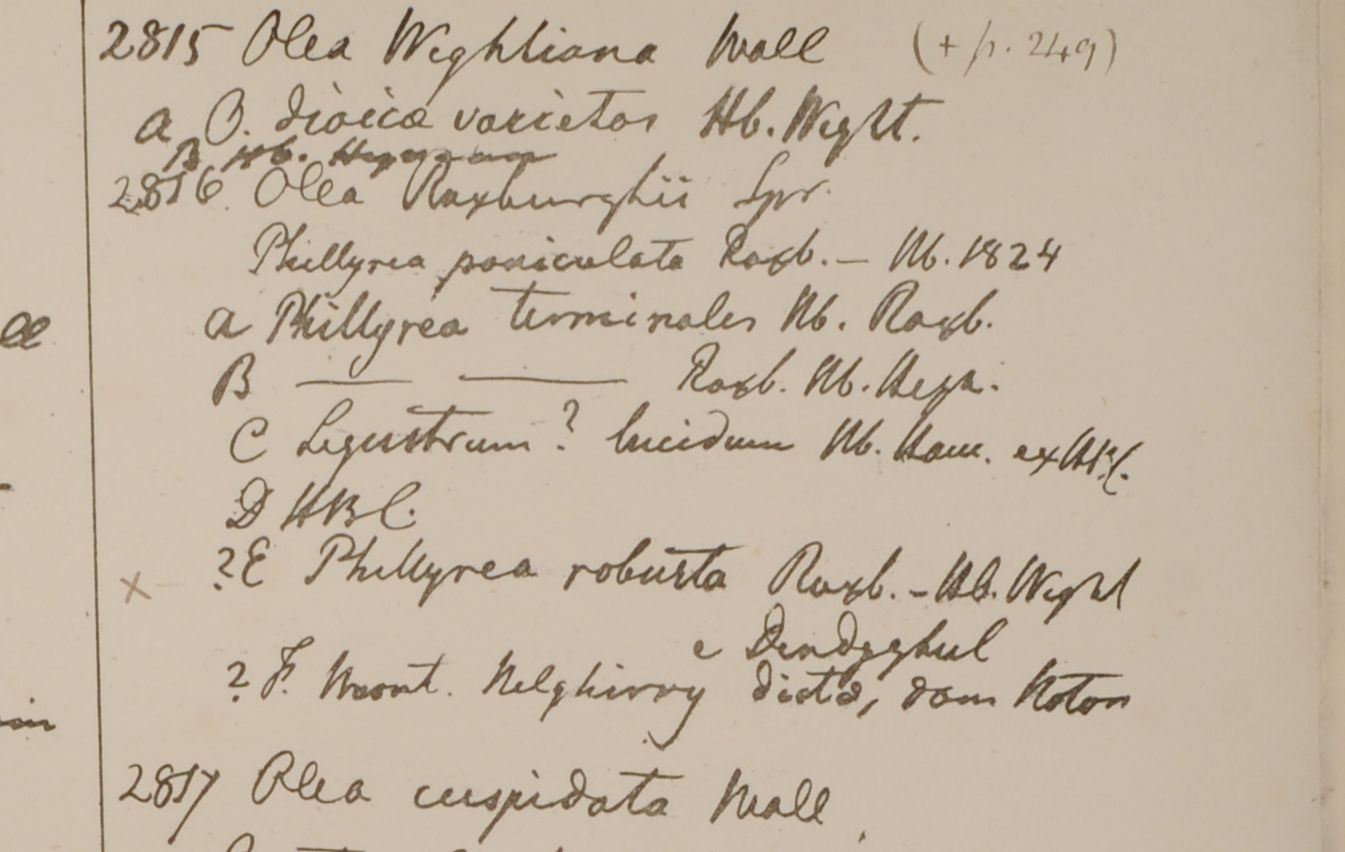 2815 Olea Wightiana Wall (+ p. 249)
a O. dioica varietas Hb. Wight.
B Hb. Heyneana
2816 Olea Roxburghii Spr.
Phillyrea paniculata Roxb. — Hb. 1824
a Phillyrea terminales Hb. Roxb.
B — — Roxb. Hb. Heyn.
C Ligustrum? lucidum Hb. Ham. ex
D HBC.
x ?E Phillyrea robusta Roxb. - Hb. Wight
e Dendyghul
?F. Mont. Nelghirry dicta, dom Noton
2817 Olea cuspidata Wall